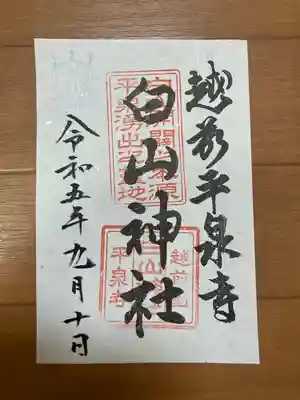 越前平泉寺
白山神社
令和五年九月十日
平泉涌出之霊地
越前
平泉寺